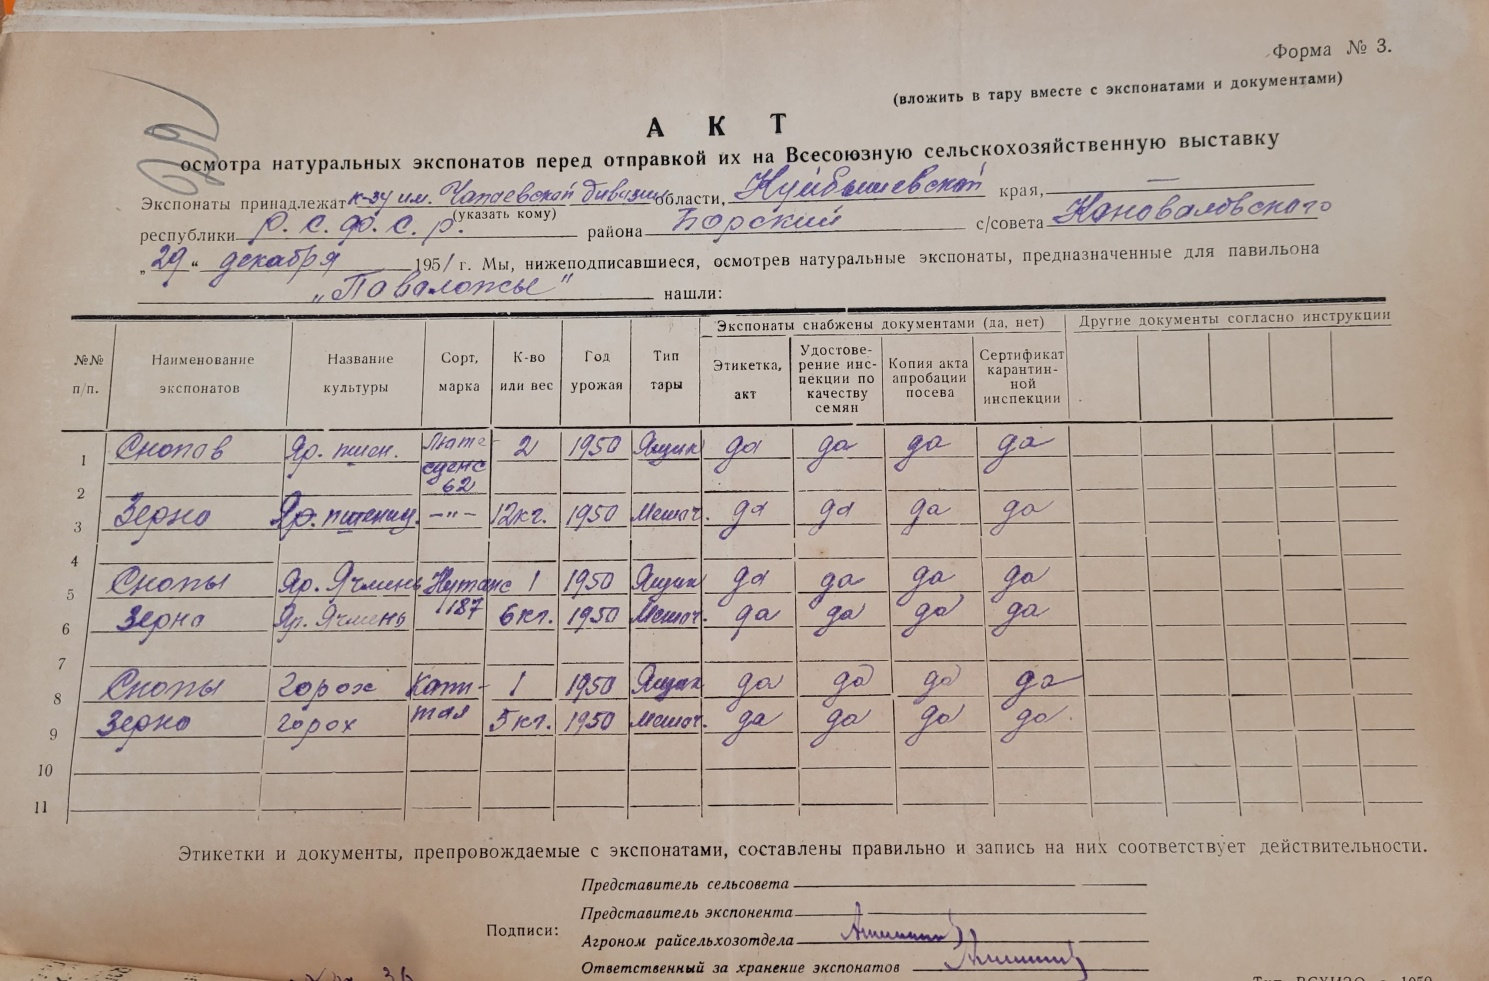 Форма № 3.
(вложить в тару вместе с экспонатами и документами)
АКТ
осмотра натуральных экспонатов перед отправкой их на Всесоюзную сельскохозяйственную выставку
Экспонаты принадлежат к-зу им. Чапаевской дивизии области, Куйбышевской края, —
(указать кому)
республики Р. С. Ф. С. Р. района Борский с/совета Коноваловского
„29“ декабря 1951 г. Мы, нижеподписавшиеся, осмотрев натуральные экспонаты, предназначенные для павильона
„Паволожье" нашли:
№№ п/п. Наименование экспонатов Название культуры Сорт, марка К-во или вес Год урожая Тип тары Экспонаты снабжены документами (да, нет) Другие документы согласно инструкции
Этикетка, акт Удостоверение инспекции по качеству семян Копия акта апробации посева Сертификат карантинной инспекции
1 Снопов Яр. пшен. Лютесценс 62 2 1950 Ящик да да да да
2
3 Зерно Яр. пшениц. —"— 12кг. 1950 Мешоч. да да да да
4
5 Снопы Яр. Ячмень Нутанс 187 1 1950 Ящик да да да да
6 Зерно Яр. Ячмень 6 кг. 1950 Мешоч. да да да да
7
8 Снопы горох Капитал 1 1950 Ящик да да да да
9 Зерно горох 5 кг. 1950 мешоч. да да да да
10
11
Этикетки и документы, препровождаемые с экспонатами, составлены правильно и запись на них соответствует действительности.
Подписи:
Представитель сельсовета
Представитель экспонента
Агроном райсельхозотдела
Ответственный за хранение экспонатов